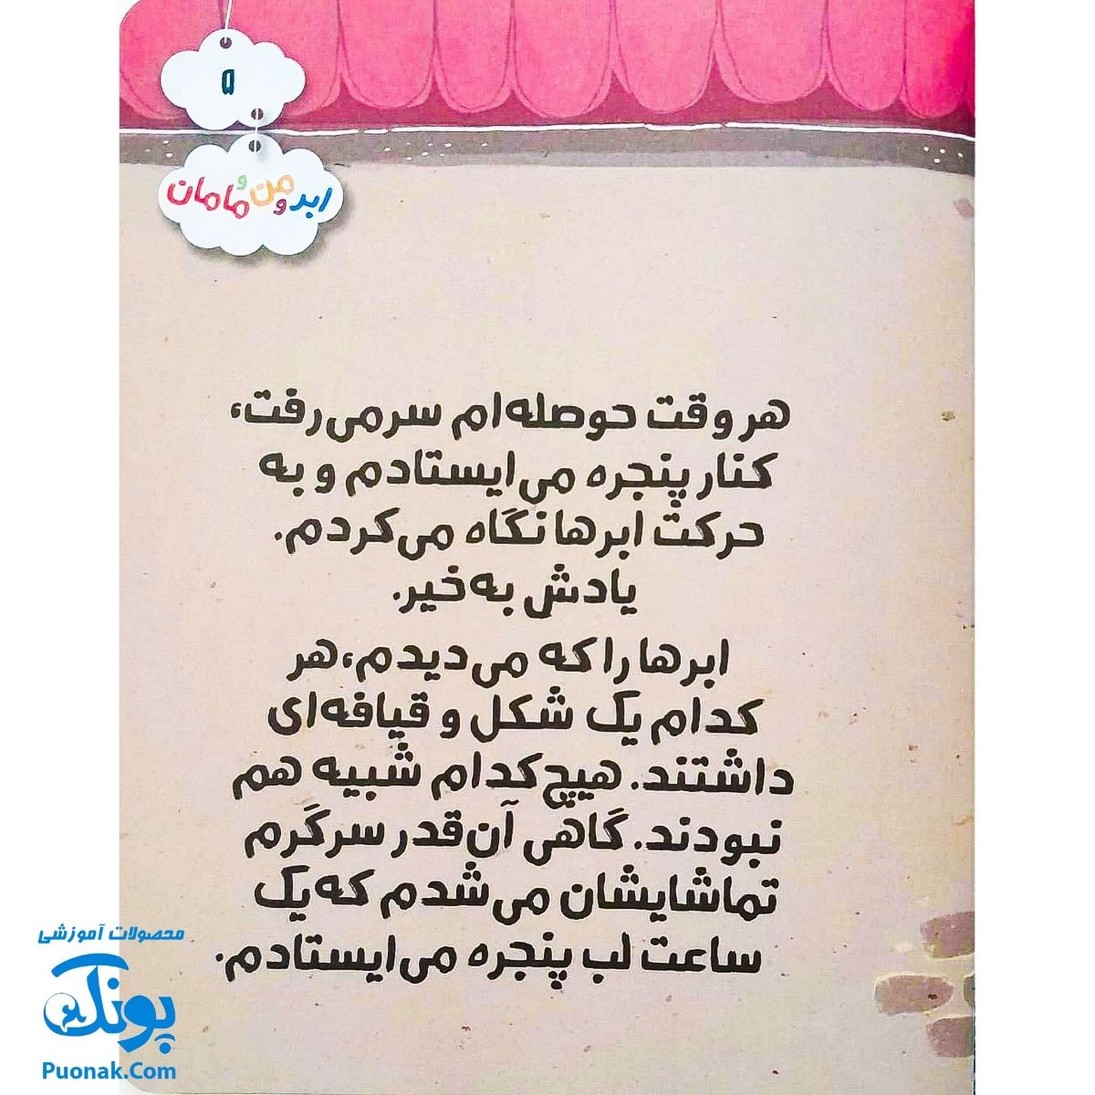 ۵
ابر و من و مامان
هر وقت حوصله‌ام سر می‌رفت،
کنار پنجره می‌ایستادم و به
حرکت ابرها نگاه می‌کردم.
یادش به‌خیر.
ابرها را که می‌دیدم، هر
کدام یک شکل و قیافه‌ای
داشتند. هیچ‌کدام شبیه هم
نبودند. گاهی آن‌قدر سرگرم
تماشایشان می‌شدم که یک
ساعت لب پنجره می‌ایستادم.
محصولات آموزشی
پونک
Puonak.Com